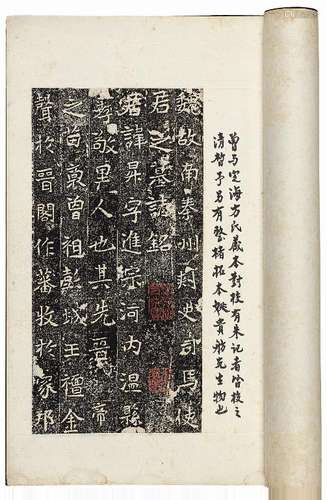 曾与定海方氏藏本對校有朱記者皆校之
清晳予另有整精拓本姚貴昉先生物也
魏故南秦州刾史司馬使
君之墓誌銘
君諱昇字進宗河內溫縣
孝敬里人也其先晉帝
之苗裔曾祖彭城王擅金
聲於晉閣作蕃牧於家邦